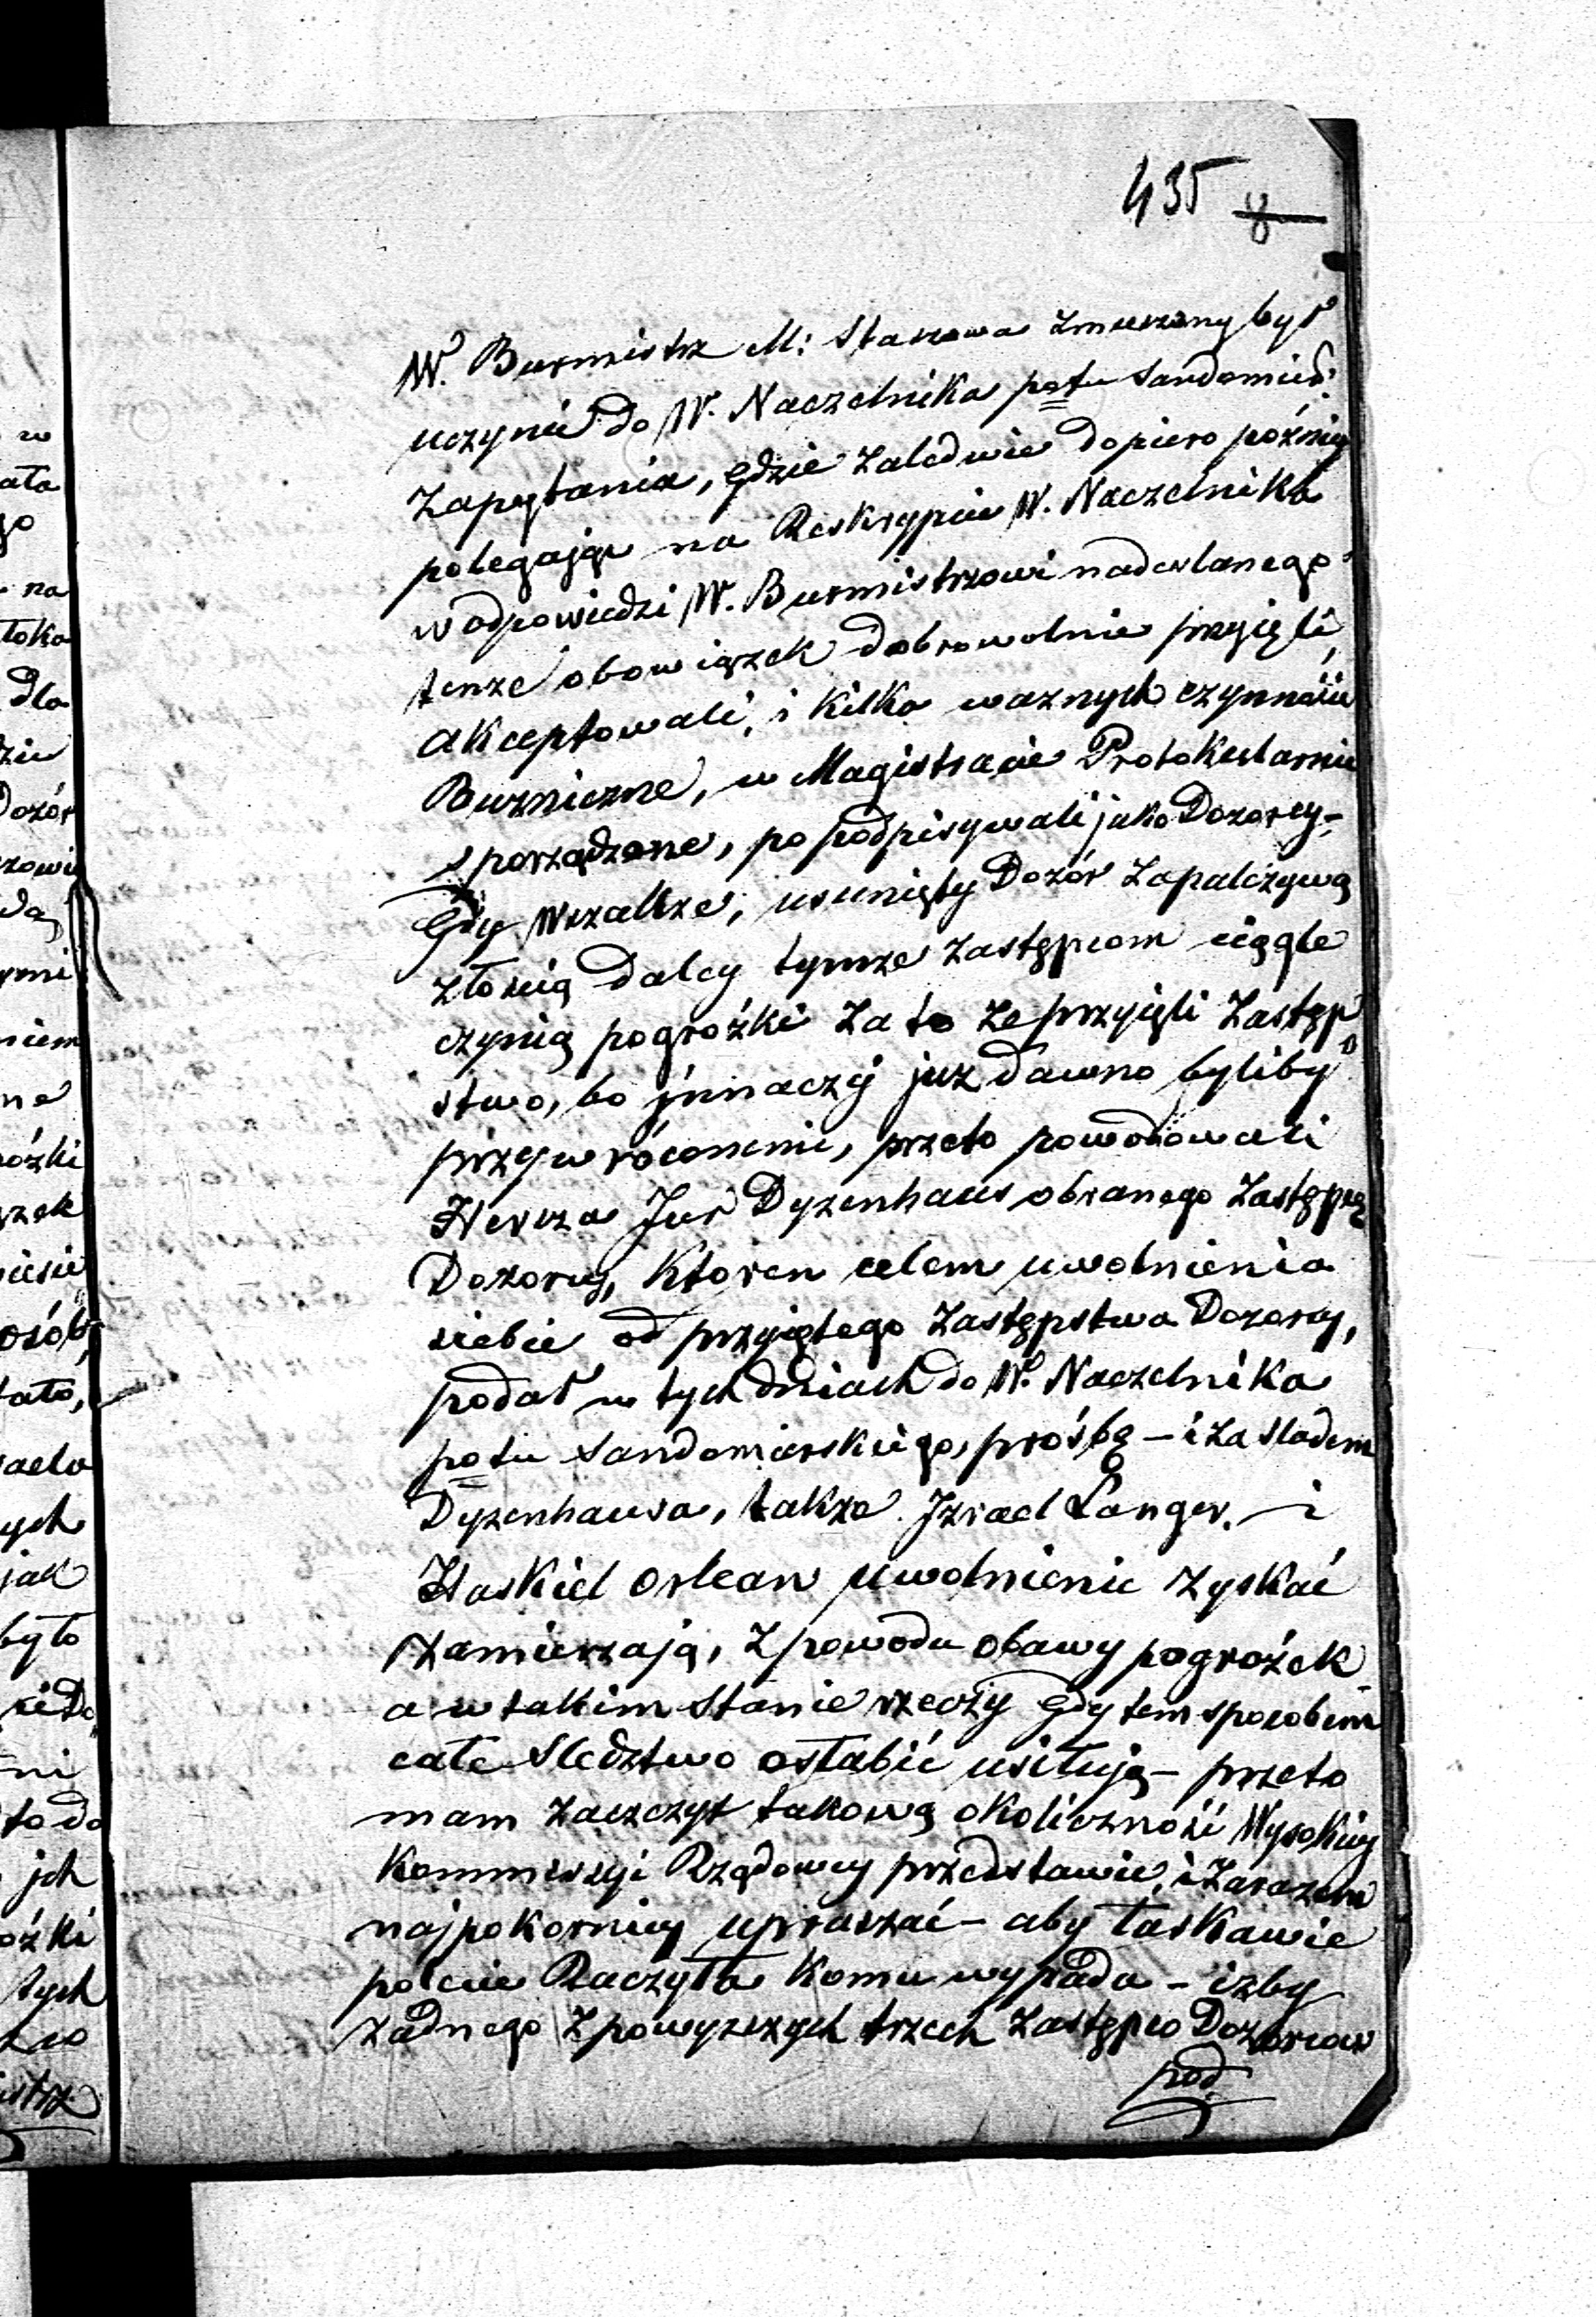 435 8
W. Burmistrz M: Staszowa zmuszony był
uczynić do W. Naczelnika pttu Sandomier:
zapytania, gdzie zaledwie dopiero późniey
polegając na Reskrypcie W. Naczelnika
w odpowiedzi W. Burmistrzowi nadesłanego
tenże obowiązek dobrowolnie przyięli,
akceptowali, i kilka ważnych czynności
Buzniczne, w Magistracie Protokularnie
sporządzone, popodpisywali jako Dozorcy –
Gdy wszakże, usunięty Dozór zapalczywą
złością daley tymże zastępcom ciągle
czynią pogrożki za to że przyięli Zastęp
stwo, bo jnnaczéj już dawno byliby
przywróconemi, przeto powodowali
Hersza Jur Dyzenhaus obranego Zastępcę
Dozorcy, ktoren celem uwolnienia
siebie od przyiętego Zastępstwa Dozorcy,
podał w tych dniach do W. Naczelnika
pottu Sandomierskiego, prośbę – i za sladem
Dyzenhausa, także Jzrael Langer. – i
Haskiel Orlean uwolnienie zyskać
zamierzają, z powodu obawy pogrożek
a w takim stanie rzeczy gdy tem sposobem
całe Sledztwo osłabić usiłują – przeto
mam zaszczyt takową okoliczność Wysokiey
Kommissyi Rządowey przedstawić, i zarazem
najpokorniey upraszać – aby łaskawie
polecić Raczyła komu wypada – iżby
żadnego z powyższych trzech Zastępco Dozorcow
pod
w
ała
go
na
toka
dla
Dozór
niem
na
óżki
osób,
tało,
ych
jak
było
ni
to do
jch
óżki
tych